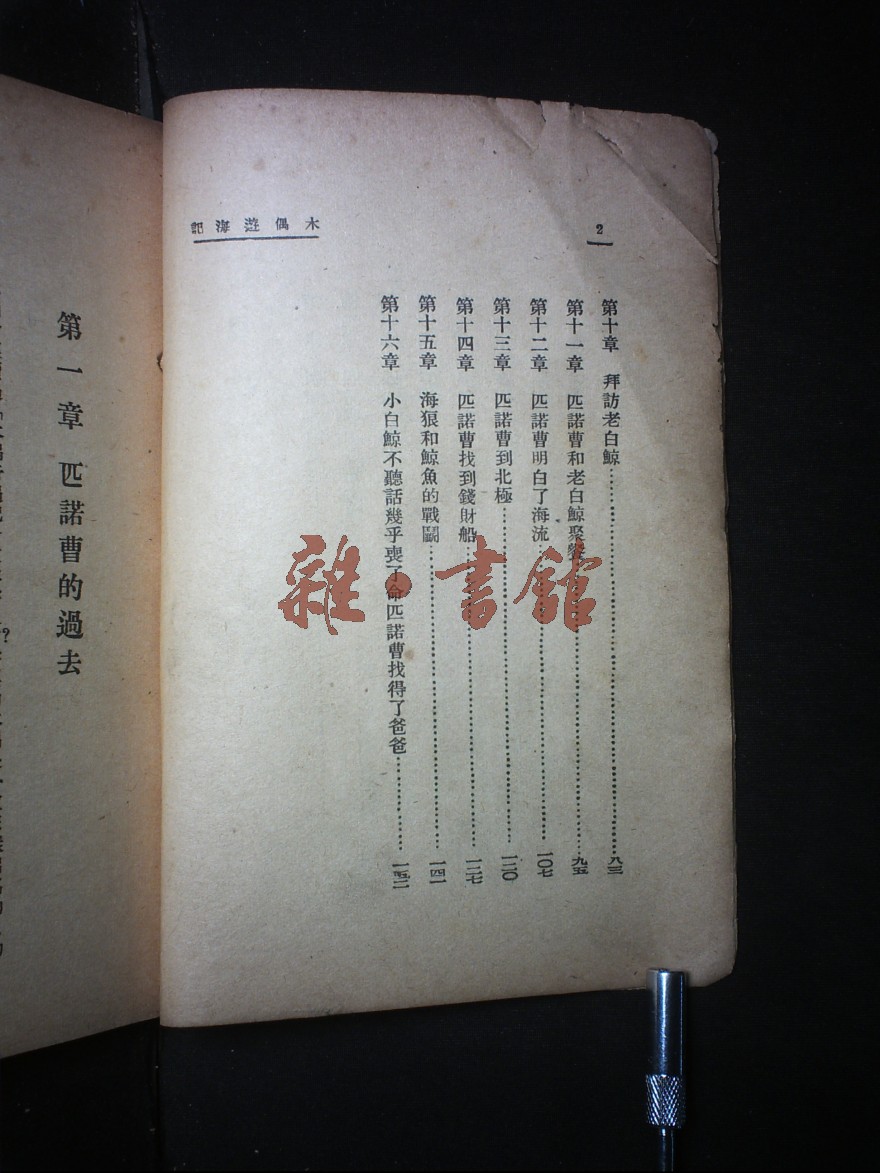 木偶遊海記
2
第十章 拜訪老白鯨……八三
第十一章 匹諾曹和老白鯨聚餐……九五
第十二章 匹諾曹明白了海流……一〇七
第十三章 匹諾曹到北極……一二〇
第十四章 匹諾曹找到錢財船……一二七
第十五章 海狼和鯨魚的戰鬭……一四一
第十六章 小白鯨不聽話幾乎喪了命匹諾曹找得了爸爸……一五二
第一章 匹諾曹的過去
雜·書館